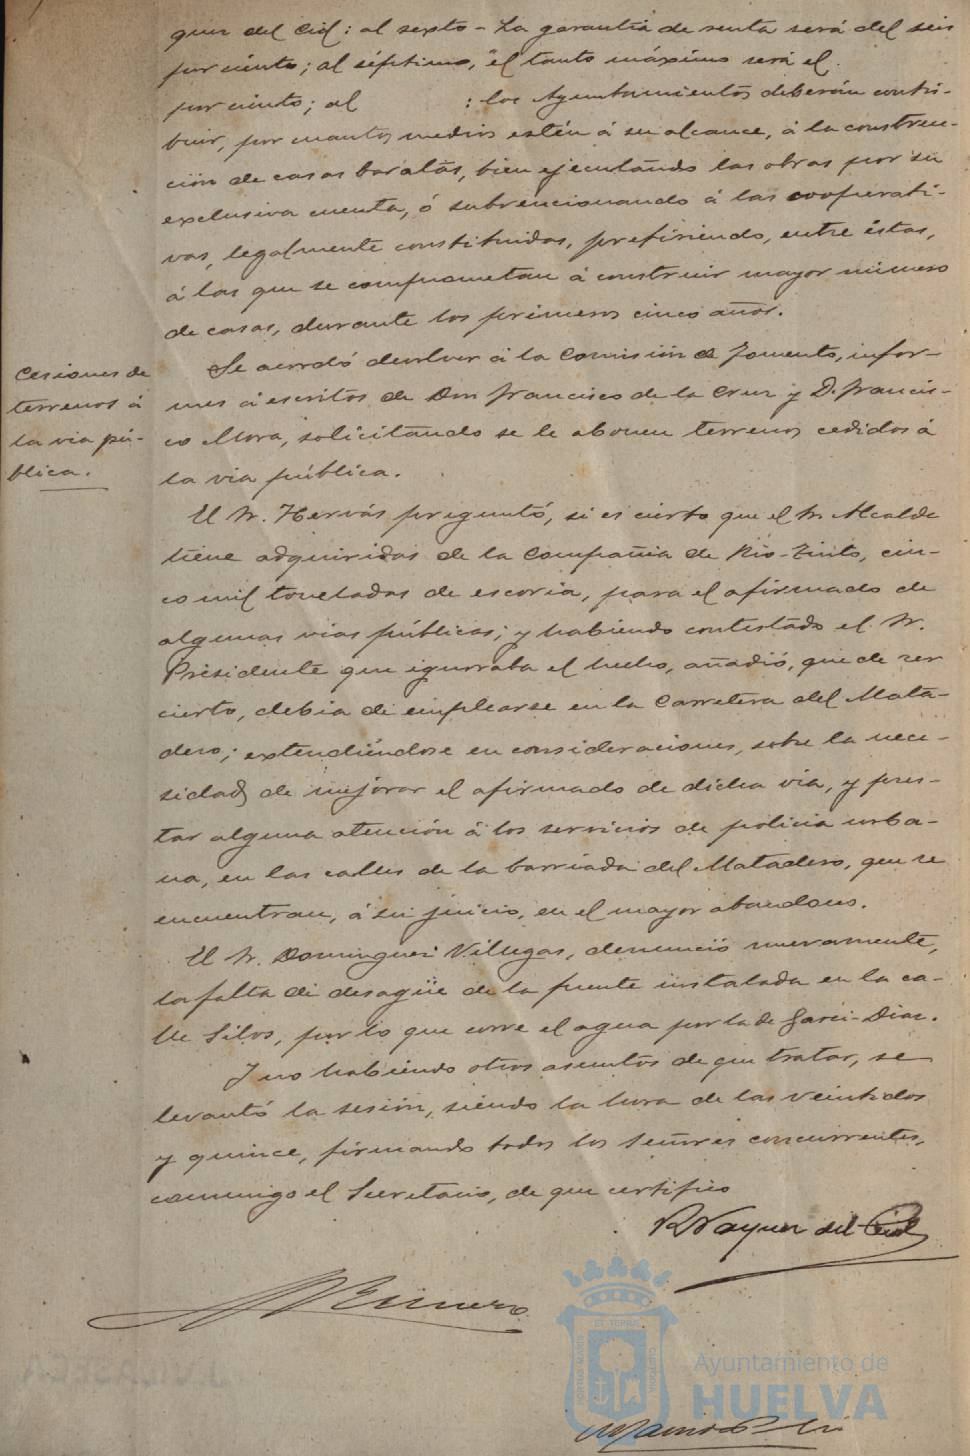 quez del Cid: al sexto - La garantía de renta será del seis
por ciento; al séptimo, "el tanto máximo será el
por ciento; al : los Ayuntamientos deberán contri-
buir, por cuantos medios estén á su alcance, á la construc-
ción de casas baratas, bien ejecutando las obras por su
exclusiva cuenta, ó subvencionando á las cooperati-
vas, legalmente constituidas, prefiriendo, entre éstas,
á las que se comprometan á construir mayor número
de casas, durante los primeros cinco años.
Cesiones de
terrenos á
la via pú-
blica.
Se acordó devolver á la Comisión de Fomento, infor-
mes á escritos de Don Francisco de la Cruz y D. Francis-
co Mora, solicitando se le abonen terrenos cedidos á
la via pública.
El Sr. Hervás preguntó, si es cierto que el Sr. Alcalde
tiene adquiridas de la Compañia de Rio-Tinto, cin-
co mil toneladas de escoria, para el afirmado de
algunas vias públicas; y habiendo contestado el Sr.
Presidente que ignoraba el hecho, añadió, que de ser
cierto, debia de emplearse en la Carretera del Mata-
dero; extendiéndose en consideraciones, sobre la nece-
sidad de mejorar el afirmado de dicha via, y pres-
tar alguna atención á los servicios de policia urba-
na, en las calles de la barriada del Matadero, que se
encuentran, á su juicio, en el mayor abandono.
El Sr. Dominguez Villegas, denunció nuevamente,
la falta de desagüe de la fuente instalada en la ca-
lle Silos, por lo que corre el agua por la de Garci-Diaz.
Y no habiendo otros asuntos de que tratar, se
levantó la sesión, siendo la hora de las veintidos
y quince, firmando todos los Señores concurrentes,
conmigo el Secretario, de que certifico
Vazquez del Cid
Ayuntamiento de
HUELVA